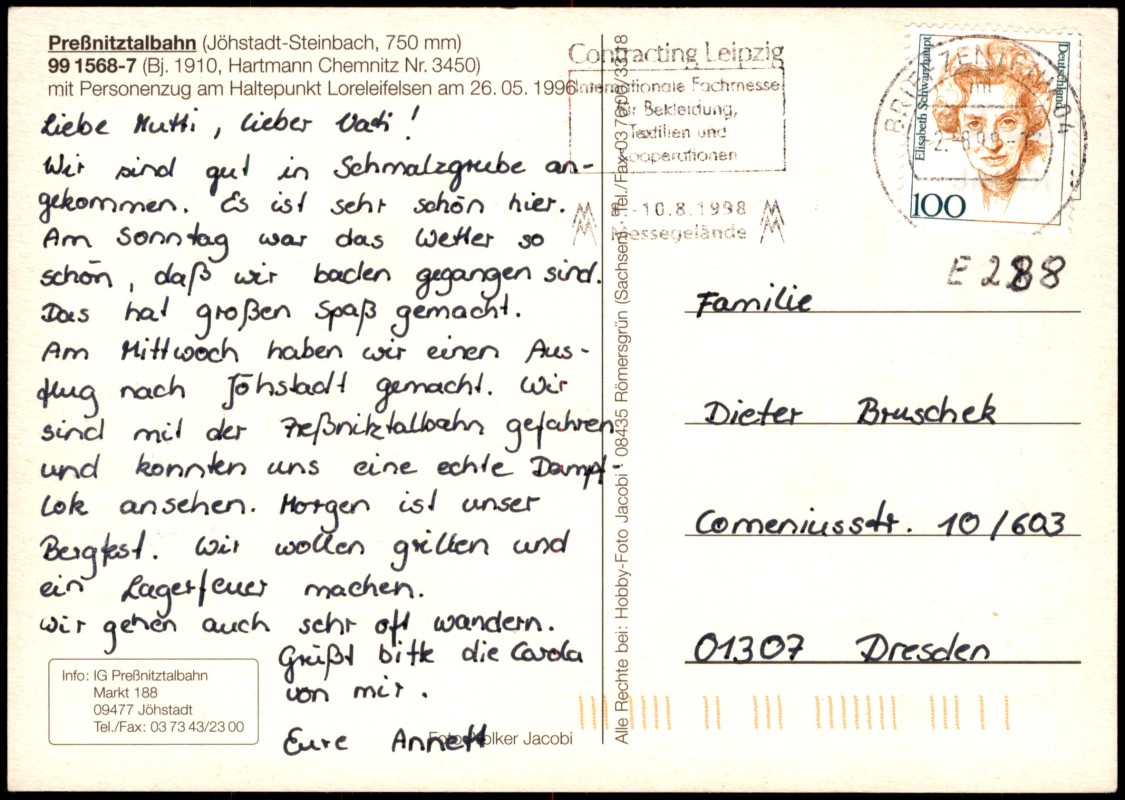 Preßnitztalbahn (Jöhstadt-Steinbach, 750 mm)
99 1568-7 (Bj. 1910, Hartmann Chemnitz Nr. 3450)
mit Personenzug am Haltepunkt Loreleifelsen am 26.05.1996
Liebe Mutti, lieber Vati!
Wir sind gut in Schmalzgrube an-
gekommen. Es ist sehr schön hier.
Am Sonntag war das Wetter so
schön, daß wir baden gegangen sind.
Das hat großen Spaß gemacht.
Am Mittwoch haben wir einen Aus-
flug nach Jöhstadt gemacht. Wir
sind mit der Preßnitztalbahn gefahren
und konnten uns eine echte Dampf-
lok ansehen. Morgen ist unser
Bergfest. Wir wollen grillen und
ein Lagerfeuer machen.
Wir gehen auch sehr oft wandern.
Grüßt bitte die Carola
von mir.
Eure Annett
Info: IG Preßnitztalbahn
Markt 188
09477 Jöhstadt
Tel./Fax: 03 73 43/23 00
Foto: Volker Jacobi
Alle Rechte bei: Hobby-Foto Jacobi · 08435 Römersgrün (Sachsen) Tel./Fax 03 76 00/33 18
Contracting Leipzig
Internationale Fachmesse
für Bekleidung,
Textilien und
Kooperationen
8.-10.8.1998
Messegelände
BRIEFZENTRUM 04
Elisabeth Schwarzhaupt
Deutschland
100
E 288
Familie
Dieter Bruschek
Comeniusstr. 10/603
01307 Dresden